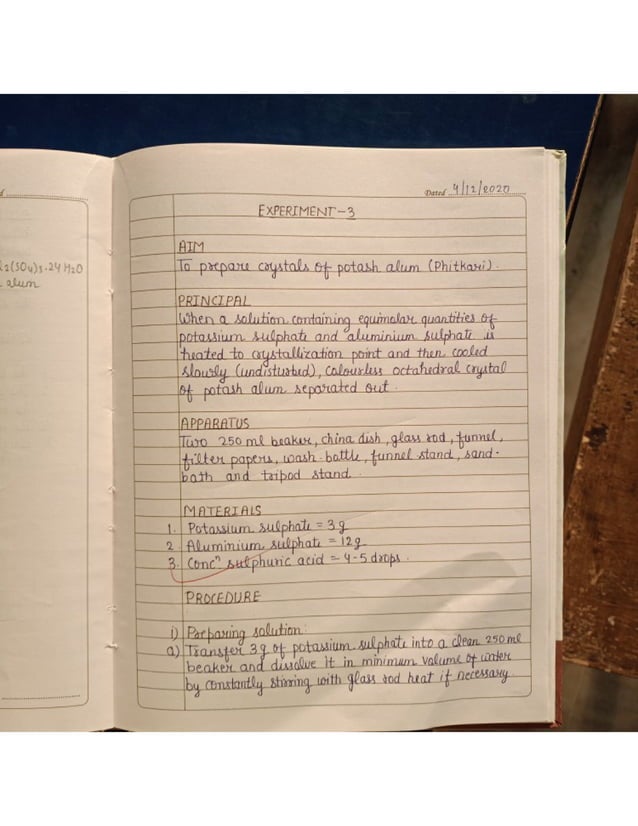 l2(SO4)3.24H2O
alum
Dated 4/12/2020
EXPERIMENT-3
AIM
To prepare crystals of potash alum (Phitkari).
PRINCIPAL
When a solution containing equimolar quantities of
potassium sulphate and aluminium sulphate is
heated to crystallization point and then cooled
slowly (undisturbed), colourless octahedral crystal
of potash alum separated out.
APPARATUS
Two 250 ml beaker, china dish, glass rod, funnel,
filter papers, wash-bottle, funnel stand, sand-
bath and tripod stand.
MATERIALS
1. Potassium sulphate = 3g
2. Aluminium sulphate = 12g
3. Concⁿ sulphuric acid = 4-5 drops.
PROCEDURE
i) Preparing solution:
a) Transfer 3g of potassium sulphate into a clean 250 ml
beaker and dissolve it in minimum volume of water
by constantly stirring with glass rod heat if necessary.